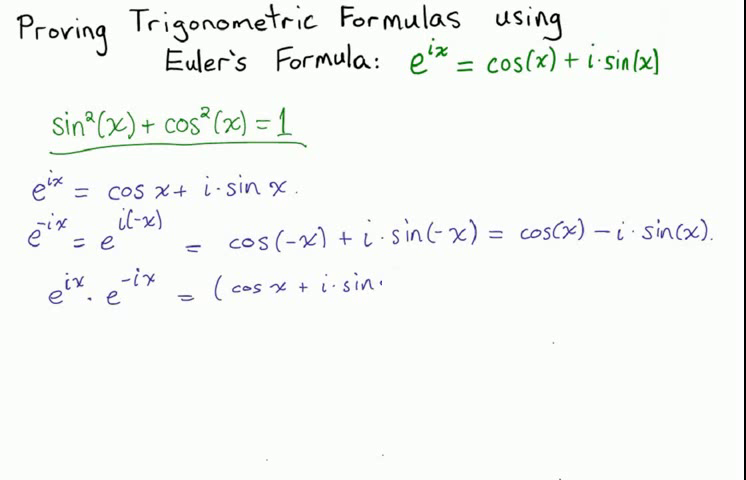 Proving Trigonometric Formulas using
Euler's Formula: e^{ix} = cos(x) + i·sin(x)
sin²(x) + cos²(x) = 1
e^{ix} = cos x + i·sin x.
e^{-ix} = e^{i(-x)} = cos(-x) + i·sin(-x) = cos(x) - i·sin(x).
e^{ix}·e^{-ix} = (cos x + i·sin